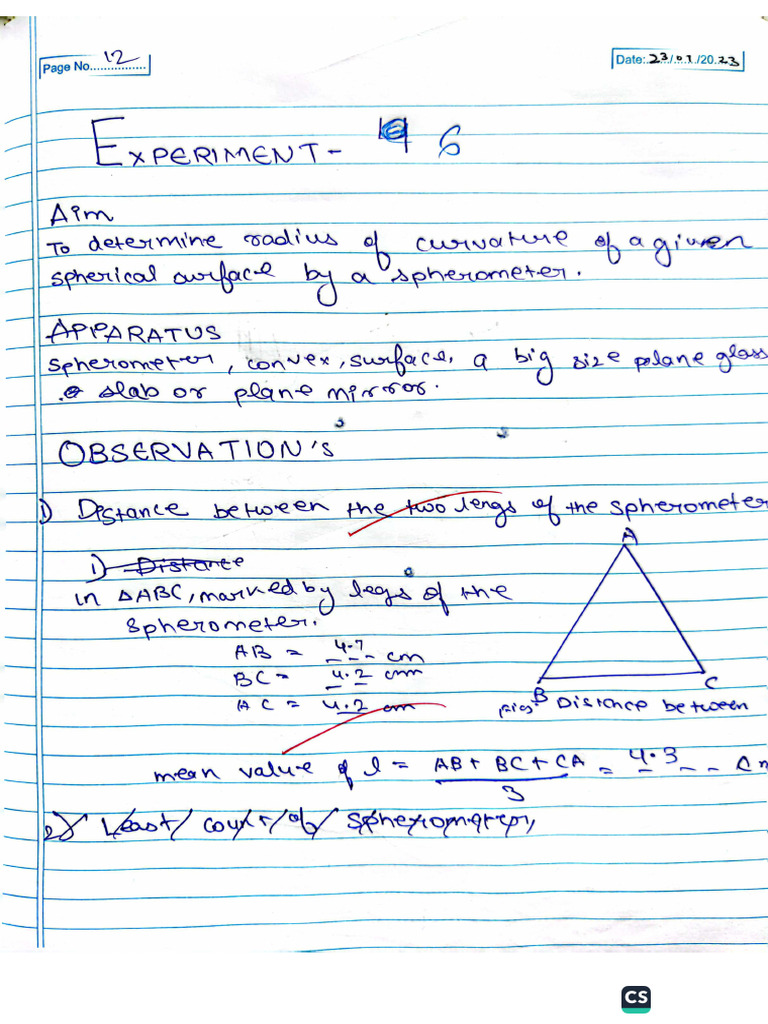 Page No. 12
Date: 23/01/2023
EXPERIMENT - 6
Aim
To determine radius of curvature of a given
spherical surface by a spherometer.
APPARATUS
spherometer, convex, surface, a big size plane glass
slab or plane mirror.
OBSERVATION'S
1) Distance between the two lengs of the spherometer
A
i) Distance
in ΔABC, marked by legs of the
spherometer.
AB = 4.7 cm
BC = 4.2 cm
AC = 4.2 cm
B
C
(fig) Distance between
mean value of l = AB + BC + CA / 3 = 4.3 cm
2) Least count of spherometer,
CS